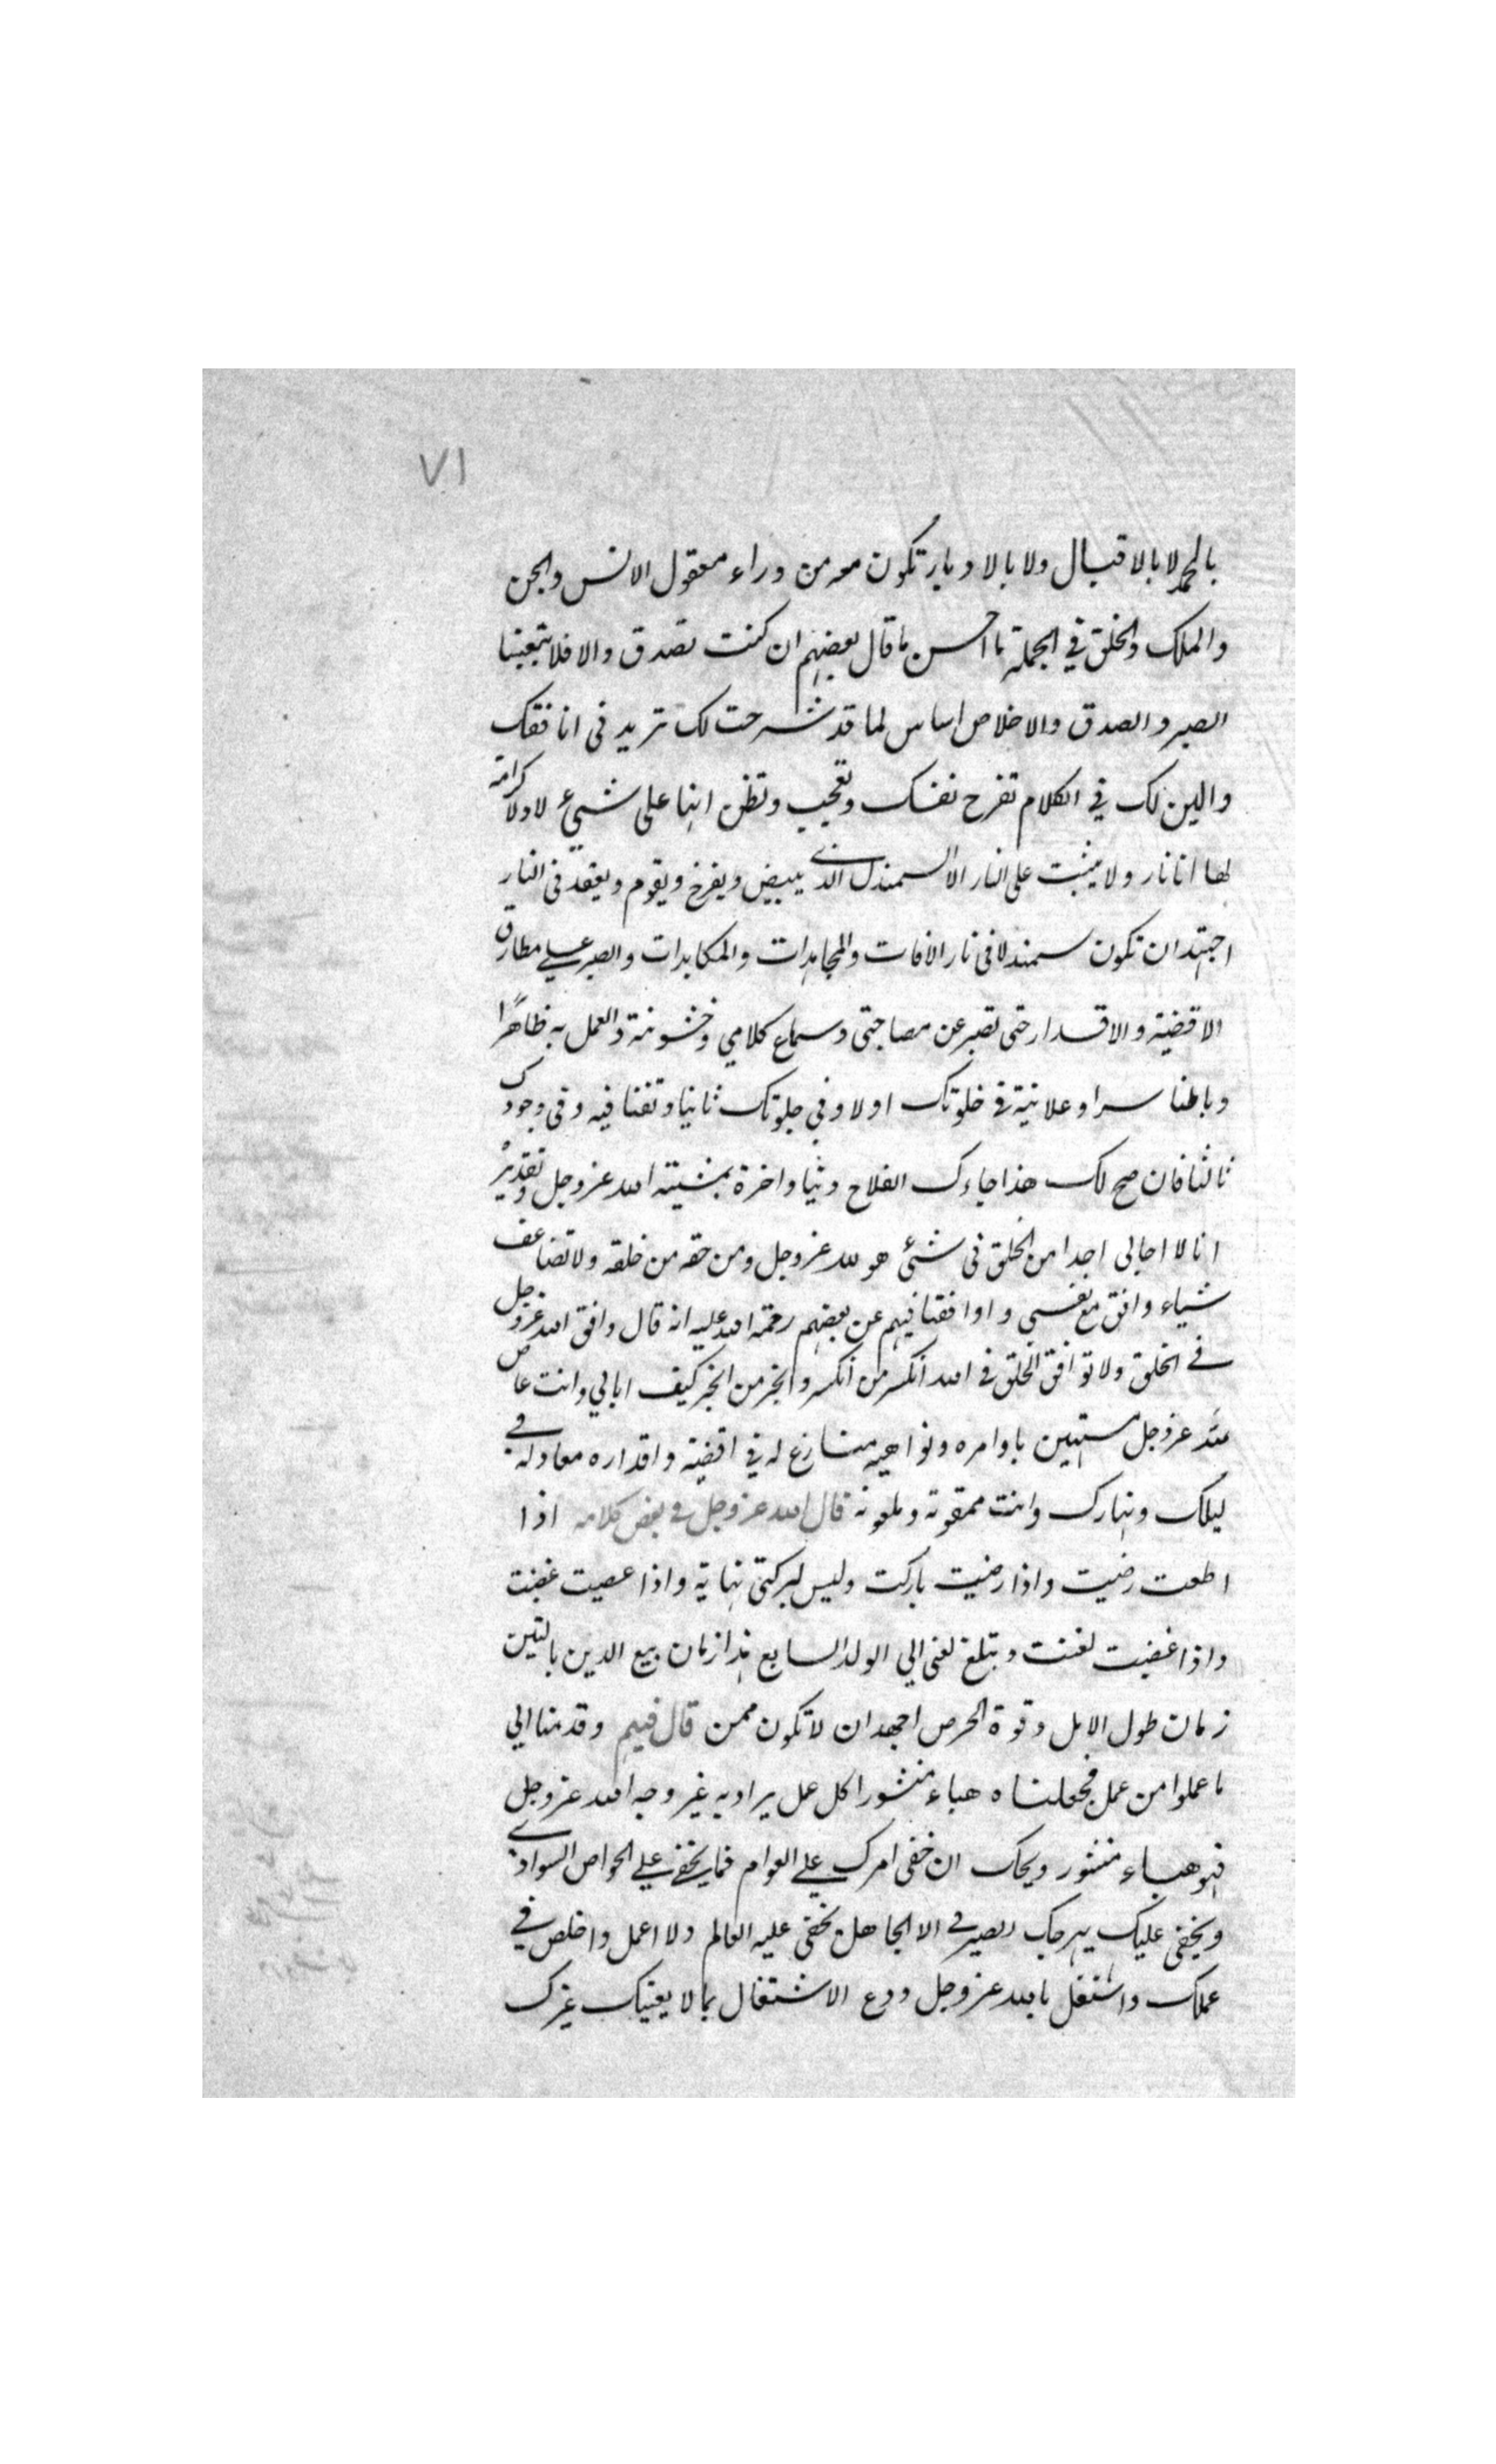 ٧١
بالحمد لا بالاقبال ولا بالادبار تكون معه من وراء معقول الانس والجن
والملك والخلق في الجملة ما احسن ما قال بعضهم ان كنت تصدق والا فلا تتبعنا
الصبر و الصدق والاخلاص اساس لما قد شرحت لك تريد في انافقك
والين لك في الكلام تفرح نفسك وتعجب وتظن انها على شيئ لا ولا كرامة
لها انا نار ولا يثبت على النار الا السمندل الذي يبيض ويفرخ ويقوم ويقعد فى النار
اجتهد ان تكون سمندلا فى نار الافات والمجاهدات والمكابدات والصبر على مطارق
الاقضية والاقدار حتى تصبر عن مصاحبتى وسماع كلامي وخشونته والعمل به ظاهرًا
وباطنا سرا وعلانية في خلوتك اولا وفي جلوتك ثانيا وتفنا فيه وفى وجودك
ثالثا فان صح لك هذا جاءك الفلاح دنيا واخرة بمشيته الله عز وجل وتقديره
انا لا احابى احدا من الخلق فى شئ هو لله عز وجل ومن حقه من خلقه ولا تضاعف
شياء وافق مع نفسى و اوافقنا فيهم عن بعضهم رحمة الله عليه انه قال وافق الله عز وجل
في الخلق ولا توافق الخلق في الله انكسر من انكسر وانجبر من انجبر كيف ابالي وانت عاص
لله عز وجل مستهين باوامره ونواهيه منازع له في اقضية واقداره معاد له في
ليلك ونهارك وانت ممقوته وملعونه قال الله عز وجل في بعض كلامه اذا
اطعت رضيت واذا رضيت باركت وليس لبركتى نهاية واذا عصيت غضبت
واذا غضبت لعنت وتبلغ لعنى الي الولد السابع هذا زمان بيع الدين بالتين
زمان طول الامل وقوة الحرص اجهد ان لا تكون ممن قال فيهم وقدمنا الي
ما عملوا من عمل فجعلناه هباء منثورا كل عمل يراد به غير وجه الله عز وجل
فهو هباء منثور ويحك ان خفى امرك على العوام فما يخفى على الخواص السوادي
ويخفى عليك بهرجك الصيرفي الا الجاهل يخفى عليه العالم ولا اعمل واخلص في
عملك واشتغل بالله عز وجل ودع الاشتغال بما لا يعنيك غيرك